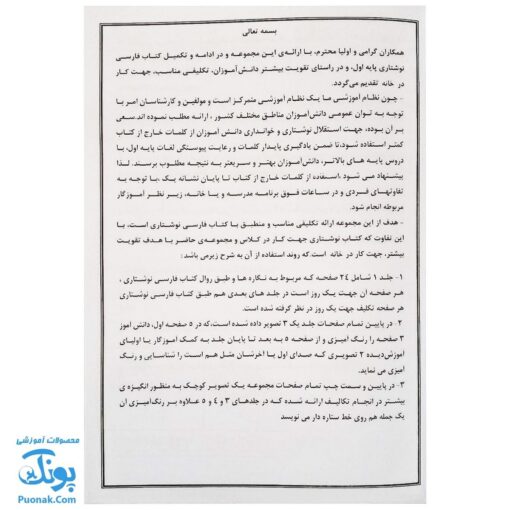 بسمه تعالی
همکاران گرامی و اولیا محترم، با ارائه‌ی این مجموعه و در ادامه و تکمیل کتاب فارسی
نوشتاری پایه اول، و در راستای تقویت بیشتر دانش‌آموزان، تکلیفی مناسب، جهت کار
در خانه تقدیم می‌گردد.
- چون نظام آموزشی ما یک نظام آموزشی متمرکز است و مولفین و کارشناسان امر با
توجه به توان عمومی دانش‌آموزان مناطق مختلف کشور، ارائه مطلب نموده اند.سعی
بر آن بوده، جهت استقلال نوشتاری و خوانداری دانش‌آموزان از کلمات خارج از کتاب
کمتر استفاده شود،تا ضمن یادگیری پایدار کلمات و رعایت پیوستگی لغات پایه اول، با
دروس پایه های بالاتر، دانش‌آموزان بهتر و سریعتر به نتیجه مطلوب برسند. لذا
پیشنهاد می شود ،استفاده از کلمات خارج از کتاب تا پایان نشانه یک ،با توجه به
تفاوتهای فردی و در ساعات فوق برنامه مدرسه و یا خانه، زیر نظر آموزگار
مربوطه انجام شود.
- هدف از این مجموعه ارائه تکلیفی مناسب و منطبق با کتاب فارسی نوشتاری است، با
این تفاوت که کتاب نوشتاری جهت کار در کلاس و مجموعه‌ی حاضر با هدف تقویت
بیشتر، جهت کار در خانه است.که روند استفاده از آن به شرح زیرمی باشد :
۱- جلد ۱ شامل ۲۴ صفحه که مربوط به نگاره ها و طبق روال کتاب فارسی نوشتاری ،
هر صفحه آن جهت یک روز است در جلد های بعدی هم طبق کتاب فارسی نوشتاری
هر صفحه تکلیف جهت یک روز در نظر گرفته شده است.
۲- در پایین تمام صفحات جلد یک ۳ تصویر داده شده است،که در ۵ صفحه اول، دانش آموز
۳ صفحه را رنگ آمیزی و از صفحه ۵ به بعد تا پایان جلد به کمک آموزگار یا اولیای
آموزش‌دیده ۲ تصویری که صدای اول یا آخرشان مثل هم است را شناسایی و رنگ
آمیزی می نماید.
۳- در پایین و سمت چپ تمام صفحات مجموعه یک تصویر کوچک به منظور انگیزه ی
بیشتر در انجام تکالیف ارائه شده که در جلدهای ۳ و ۴ و ۵ علاوه بر رنگ‌آمیزی آن
یک جمله هم روی خط ستاره دار می نویسد
محصولات آموزشی
پونک
Puonak.Com